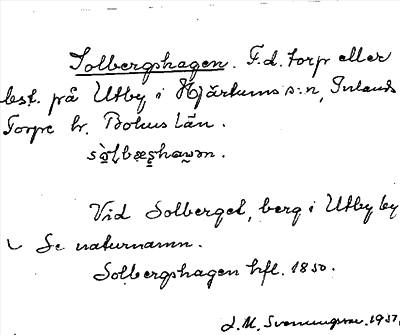 Solbergshagen. F.d. torp eller
best. på Utby i Hjärtums s:n, Inlands
Torpe hr. Bohus län.
Vid Solberget, berg i Utby by
Se naturnamn.
Solbergshagen hfl. 1850.